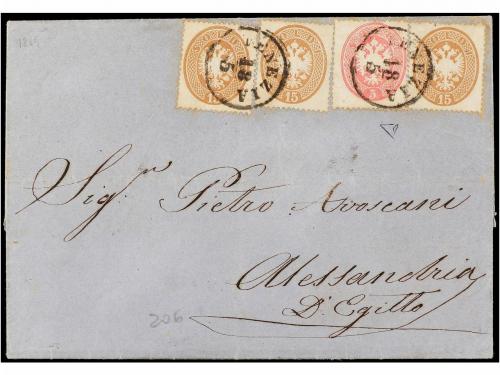 1865
SOLDI
15
15
5
15
VENEZIA
18
5
VENEZIA
18
5
Sig.r Pietro Avoscani
Alessandria
D'Egitto
206